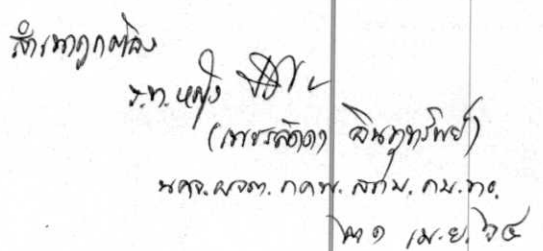 สำเนาถูกต้อง
ร.ท.หญิง
(เพชรลัดดา จินทุทรัพย์)
นคจ.ผจต. กคพ. สกบ. กบ.ทอ.
๒๑ เม.ย. ๖๔